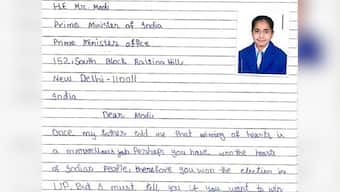 H.E Mr. Modi
Prime Minister of India
Prime Minister office
152, South Block Raisina Hill,
New Delhi-110011
India
Dear Modi
Once my father told me that winning of hearts is
a marvellous job. Perhaps you have won the hearts
of Indian People, therefore you won the election in
UP. But I must tell you if you want to win